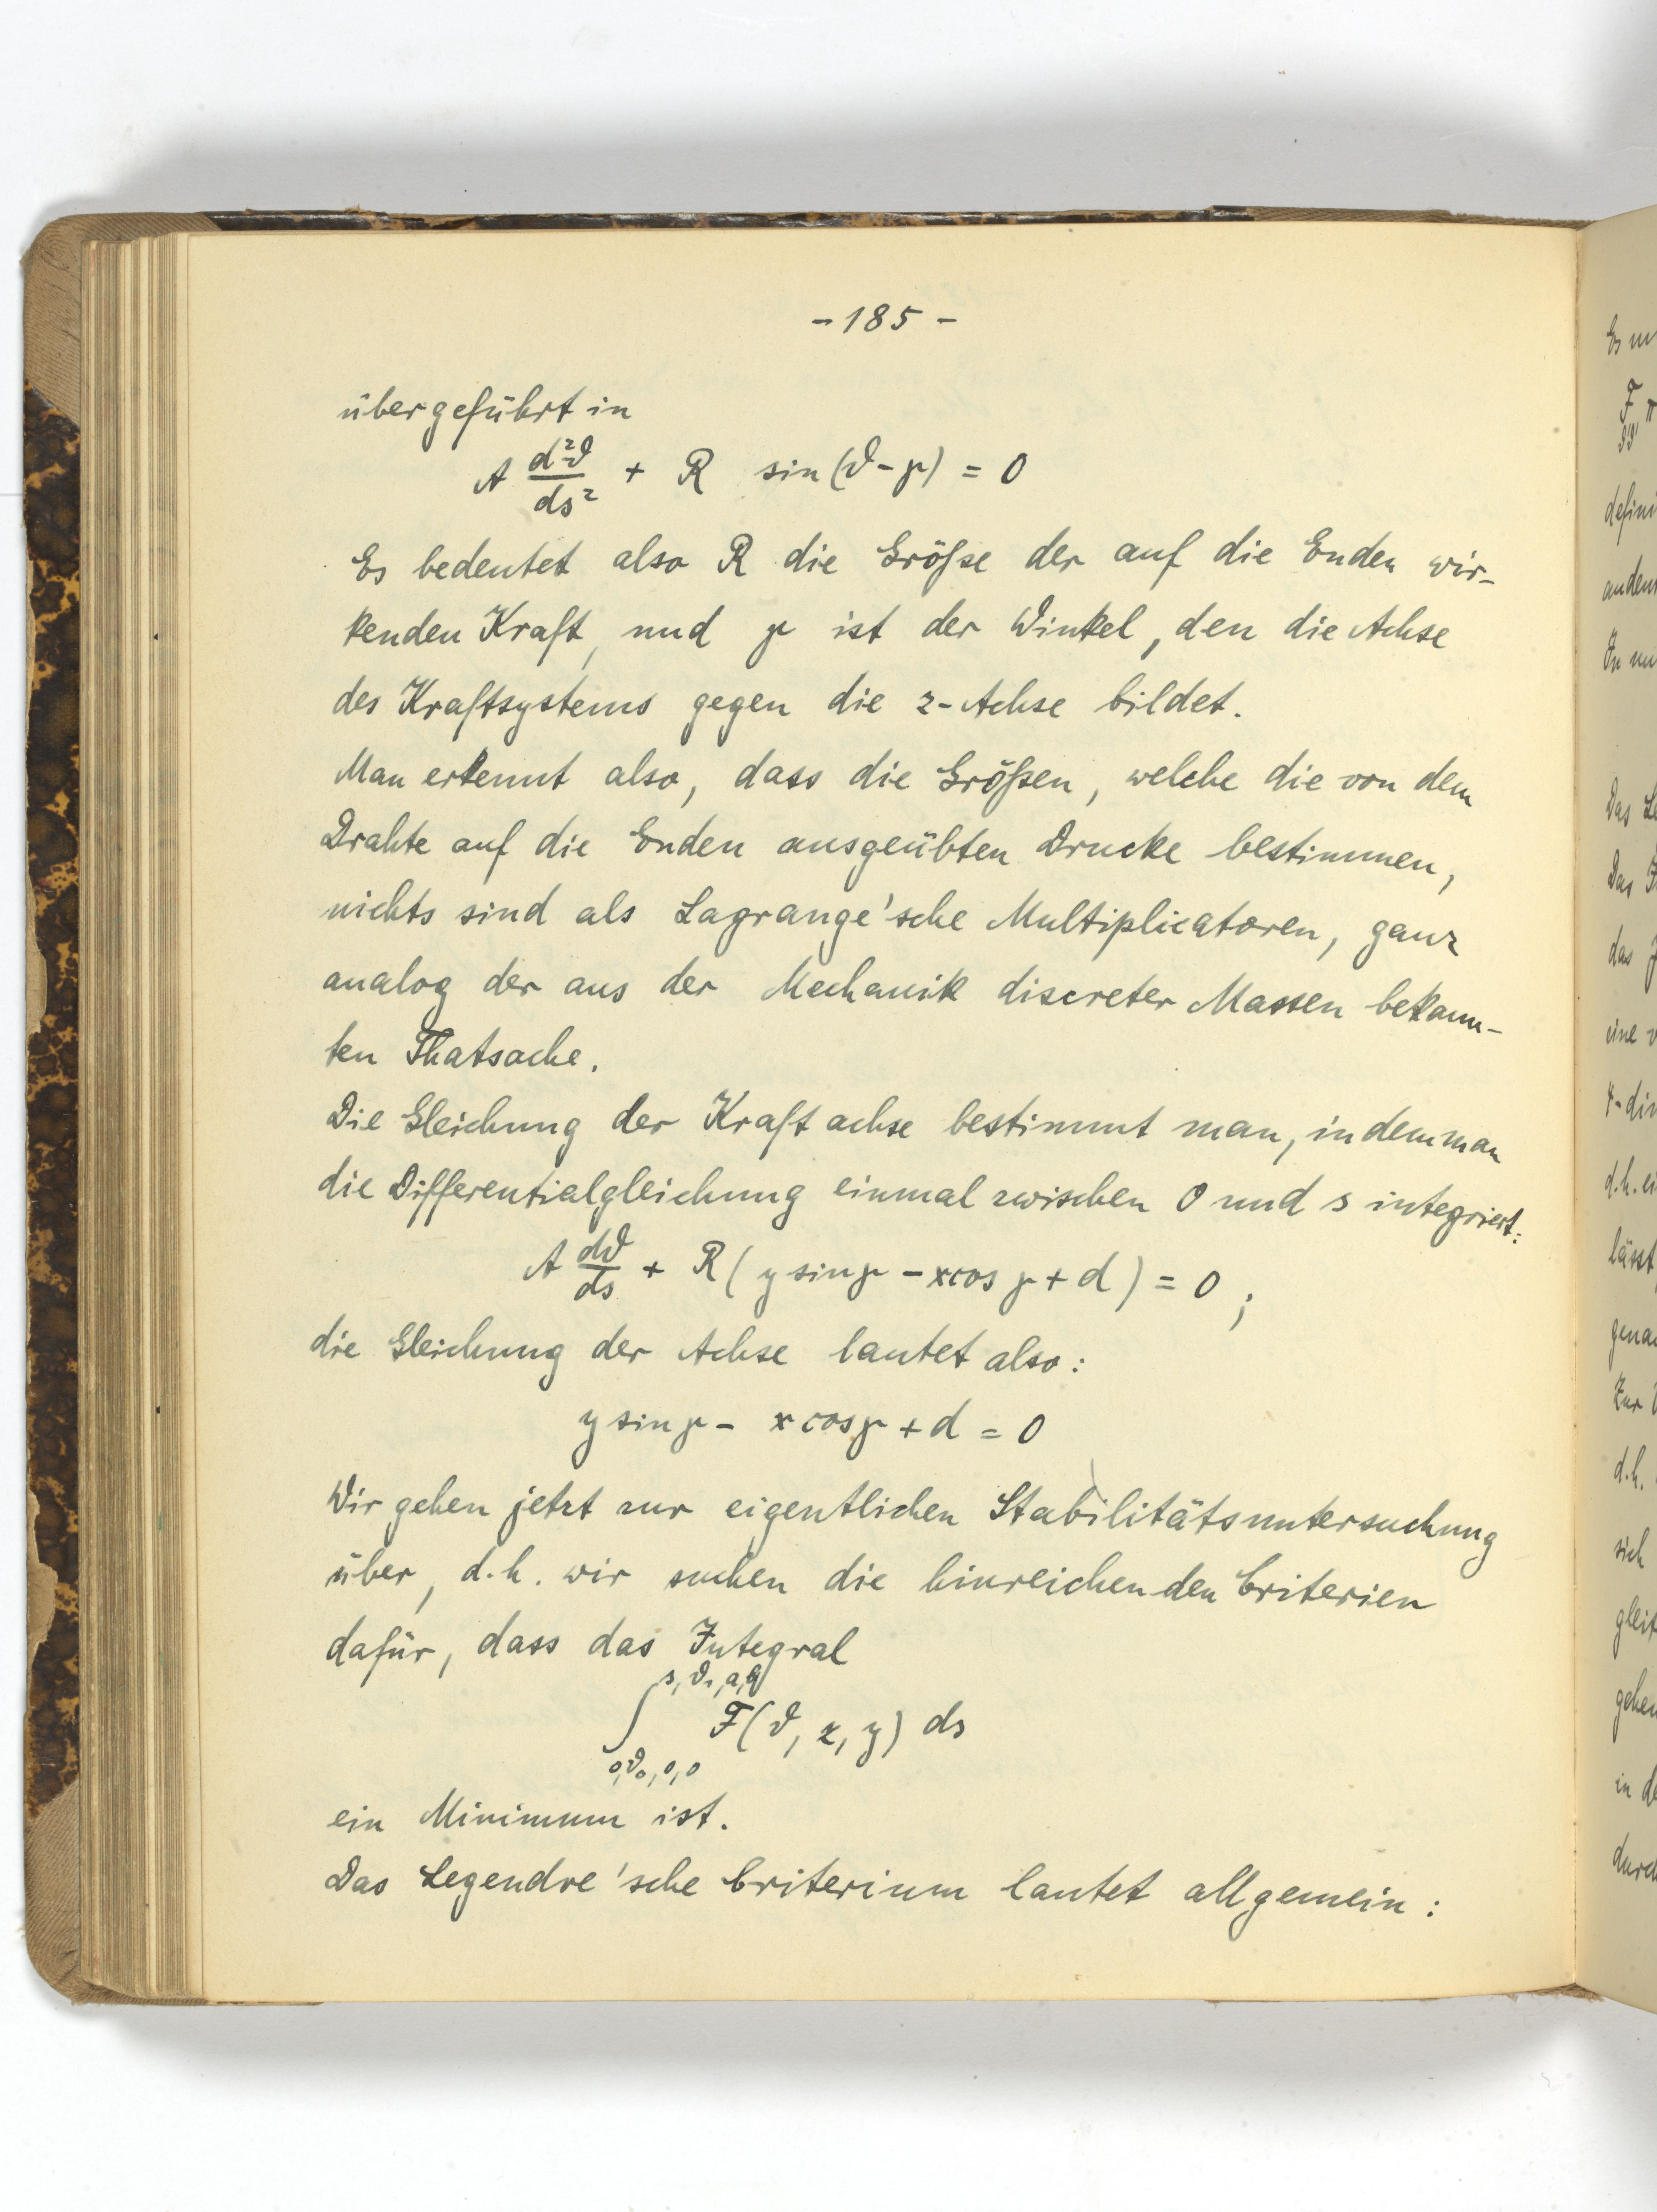 - 185 -
übergeführt in
A d²ϑ/ds² + R sin(ϑ-γ) = 0
Es bedeutet also R die Größe der auf die Enden wir-
kenden Kraft, und γ ist der Winkel, den die Achse
des Kraftsystems gegen die z-Achse bildet.
Man erkennt also, dass die Größen, welche die von dem
Drahte auf die Enden ausgeübten Drucke bestimmen,
nichts sind als Lagrange'sche Multiplicatoren, ganz
analog der aus der Mechanik discreter Massen bekann-
ten Thatsache.
Die Gleichung der Kraftachse bestimmt man, indem man
die Differentialgleichung einmal zwischen 0 und s integriert:
A dϑ/ds + R( y sin γ - x cos γ + d ) = 0 ;
die Gleichung der Achse lautet also:
y sin γ - x cos γ + d = 0
Wir gehen jetzt zur eigentlichen Stabilitätsuntersuchung
über, d.h. wir suchen die hinreichenden Criterien
dafür, dass das Integral
s, ϑ₁, a, b
∫ F(ϑ, x, y) ds
0, ϑ₀, 0, 0
ein Minimum ist.
Das Legendre'sche Criterium lautet allgemein: